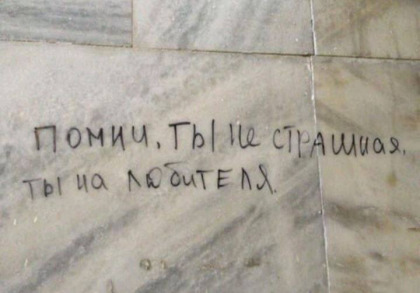 ПОМНИ, ТЫ не СТРАШНАЯ.
ТЫ на ЛЮБИТЕЛЯ.